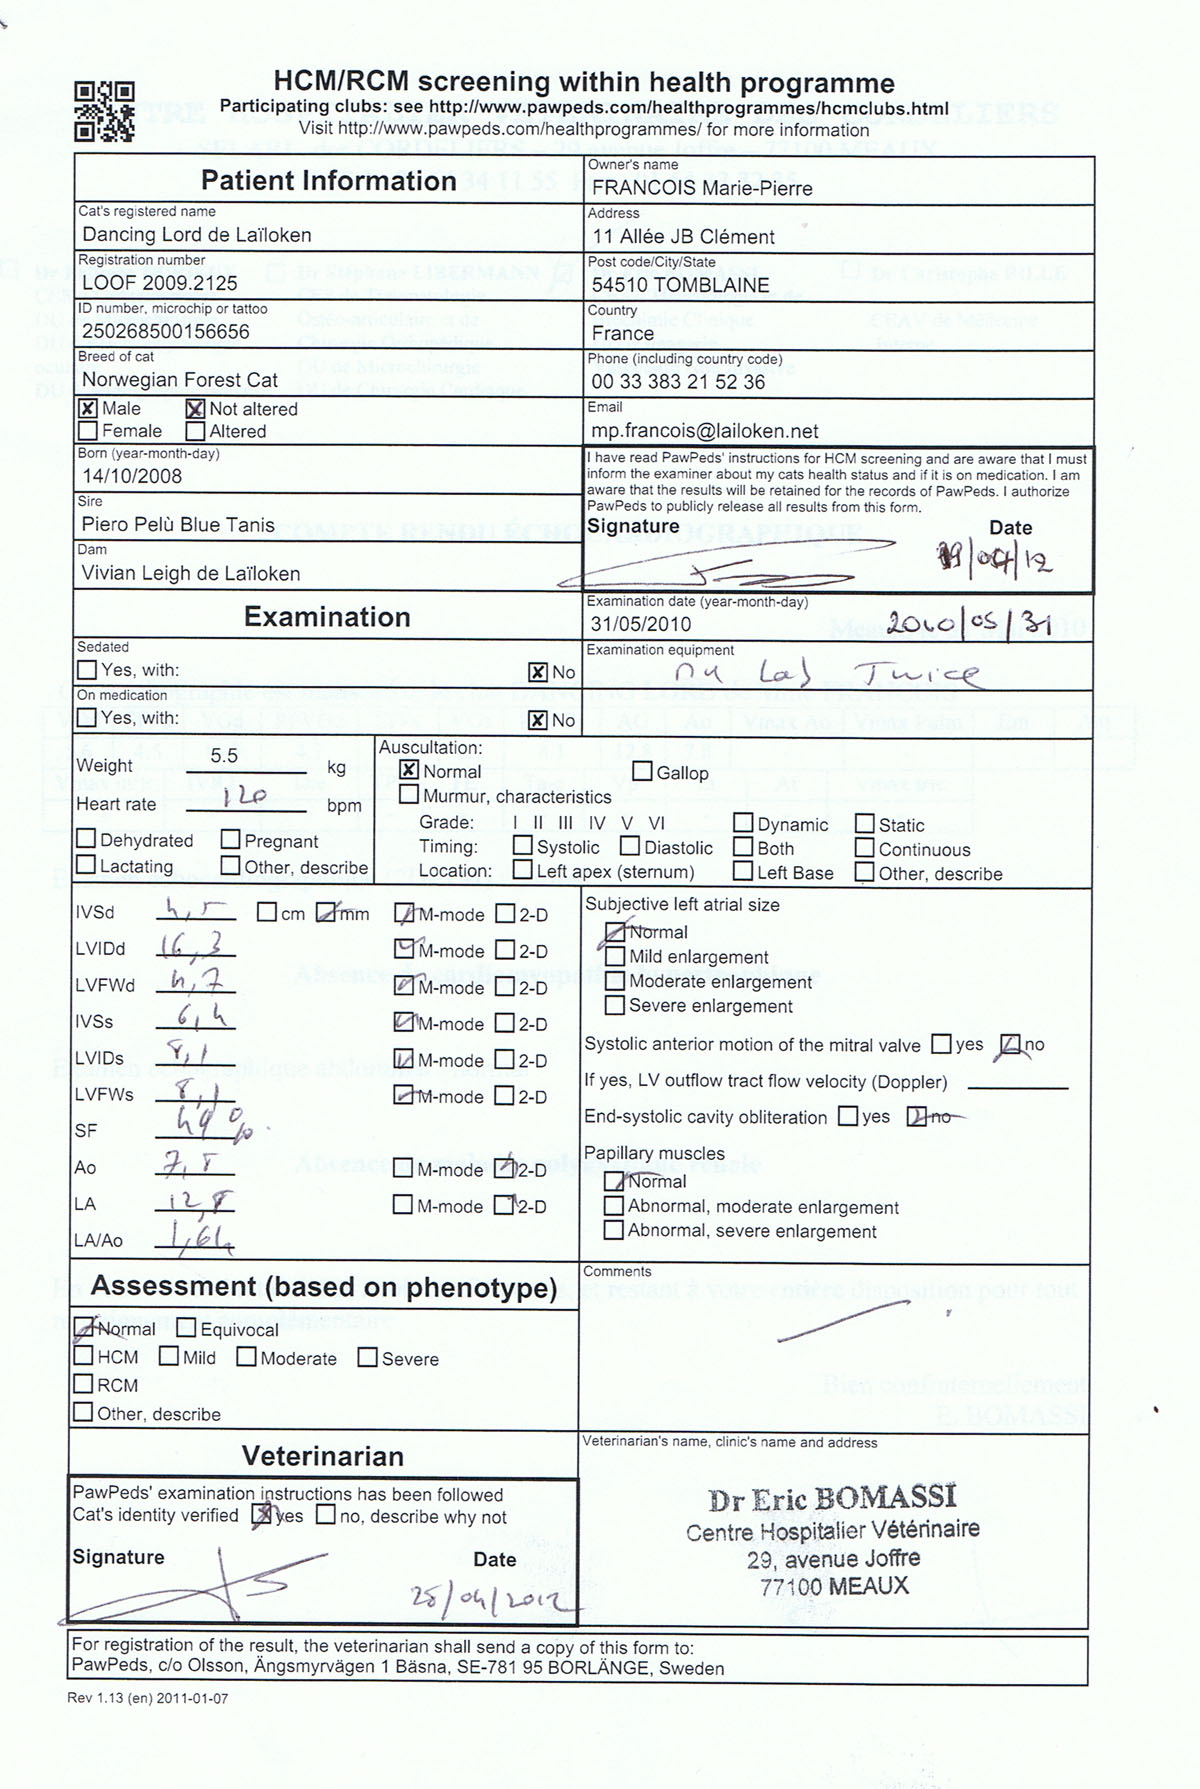 HCM/RCM screening within health programme
Participating clubs: see http://www.pawpeds.com/healthprogrammes/hcmclubs.html
Visit http://www.pawpeds.com/healthprogrammes/ for more information
Patient Information
Owner's name
FRANCOIS Marie-Pierre
Cat's registered name
Dancing Lord de Laïloken
Address
11 Allée JB Clément
Registration number
LOOF 2009.2125
Post code/City/State
54510 TOMBLAINE
ID number, microchip or tattoo
250268500156656
Country
France
Breed of cat
Norwegian Forest Cat
Phone (including country code)
00 33 383 21 52 36
Male Not altered
Female Altered
Email
mp.francois@lailoken.net
Born (year-month-day)
14/10/2008
Sire
Piero Pelù Blue Tanis
Dam
Vivian Leigh de Laïloken
I have read PawPeds' instructions for HCM screening and are aware that I must
inform the examiner about my cats health status and if it is on medication. I am
aware that the results will be retained for the records of PawPeds. I authorize
PawPeds to publicly release all results from this form.
Signature Date
Examination
Examination date (year-month-day)
31/05/2010 2010/05/31
Sedated
Yes, with: No
Examination equipment
My Lab Twice
On medication
Yes, with: No
Weight 5.5 kg
Heart rate 120 bpm
Dehydrated Pregnant
Lactating Other, describe
Auscultation:
Normal Gallop
Murmur, characteristics
Grade: I II III IV V VI
Timing: Systolic Diastolic
Location: Left apex (sternum)
Dynamic Static
Both Continuous
Left Base Other, describe
IVSd 4,5 cm mm M-mode 2-D
LVIDd 16,3 M-mode 2-D
LVFWd 4,7 M-mode 2-D
IVSs 6,4 M-mode 2-D
LVIDs 8,1 M-mode 2-D
LVFWs 8,1 M-mode 2-D
SF 49 %
Ao 7,8 M-mode 2-D
LA 12,8 M-mode 2-D
LA/Ao 1,64
Subjective left atrial size
Normal
Mild enlargement
Moderate enlargement
Severe enlargement
Systolic anterior motion of the mitral valve yes no
If yes, LV outflow tract flow velocity (Doppler)
End-systolic cavity obliteration yes no
Papillary muscles
Normal
Abnormal, moderate enlargement
Abnormal, severe enlargement
Assessment (based on phenotype)
Normal Equivocal
HCM Mild Moderate Severe
RCM
Other, describe
Comments
Veterinarian
PawPeds' examination instructions has been followed
Cat's identity verified yes no, describe why not
Signature Date
25/04/2012
Veterinarian's name, clinic's name and address
Dr Eric BOMASSI
Centre Hospitalier Vétérinaire
29, avenue Joffre
77100 MEAUX
For registration of the result, the veterinarian shall send a copy of this form to:
PawPeds, c/o Olsson, Ängsmyrvägen 1 Bäsna, SE-781 95 BORLÄNGE, Sweden
Rev 1.13 (en) 2011-01-07